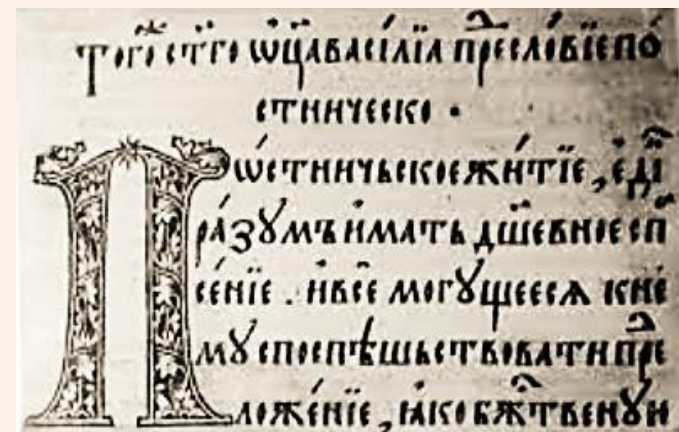 Тогѡ ст҃го ѡц҃а васі́лїа пре́сло́вїе по́
стническо ·
Пѡстничьское жи́тїе, е҆ди́
ра́зꙋмъ и҆мать дш҃евное сп҃
се́нїе . и҆ все̑ могꙋщеесѧ к не
мꙋ споспѣшьствовати пре
ложе́нїе, ꙗ҆ко бж҃твенꙋ и